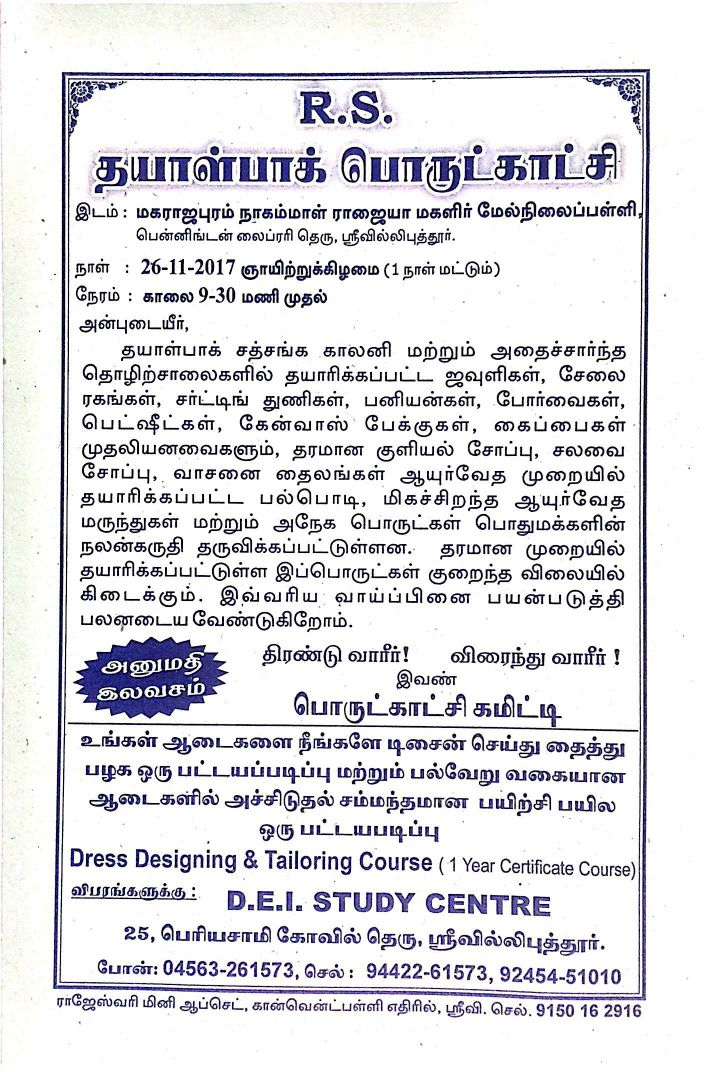 R.S.
தயாள்பாக் பொருட்காட்சி
இடம் : மகராஜபுரம் நாகம்மாள் ராஜையா மகளிர் மேல்நிலைப்பள்ளி,
பென்னிங்டன் லைப்ரரி தெரு, ஸ்ரீவில்லிபுத்தூர்.
நாள் : 26-11-2017 ஞாயிற்றுக்கிழமை (1 நாள் மட்டும்)
நேரம் : காலை 9-30 மணி முதல்
அன்புடையீர்,
தயாள்பாக் சத்சங்க காலனி மற்றும் அதைச்சார்ந்த
தொழிற்சாலைகளில் தயாரிக்கப்பட்ட ஜவுளிகள், சேலை
ரகங்கள், சர்ட்டிங் துணிகள், பனியன்கள், போர்வைகள்,
பெட்ஷீட்கள், கேன்வாஸ் பேக்குகள், கைப்பைகள்
முதலியனவைகளும், தரமான குளியல் சோப்பு, சலவை
சோப்பு, வாசனை தைலங்கள் ஆயுர்வேத முறையில்
தயாரிக்கப்பட்ட பல்பொடி, மிகச்சிறந்த ஆயுர்வேத
மருந்துகள் மற்றும் அநேக பொருட்கள் பொதுமக்களின்
நலன்கருதி தருவிக்கப்பட்டுள்ளன. தரமான முறையில்
தயாரிக்கப்பட்டுள்ள இப்பொருட்கள் குறைந்த விலையில்
கிடைக்கும். இவ்வரிய வாய்ப்பினை பயன்படுத்தி
பலனடைய வேண்டுகிறோம்.
அனுமதி
இலவசம்
திரண்டு வாரீர்! விரைந்து வாரீர் !
இவண்
பொருட்காட்சி கமிட்டி
உங்கள் ஆடைகளை நீங்களே டிசைன் செய்து தைத்து
பழக ஒரு பட்டயப்படிப்பு மற்றும் பல்வேறு வகையான
ஆடைகளில் அச்சிடுதல் சம்மந்தமான பயிற்சி பயில
ஒரு பட்டயபடிப்பு
Dress Designing & Tailoring Course ( 1 Year Certificate Course)
விபரங்களுக்கு :
D.E.I. STUDY CENTRE
25, பெரியசாமி கோவில் தெரு, ஸ்ரீவில்லிபுத்தூர்.
போன்: 04563-261573, செல் : 94422-61573, 92454-51010
ராஜேஸ்வரி மினி ஆப்செட், கான்வென்ட்பள்ளி எதிரில், ஸ்ரீவி. செல். 9150 16 2916